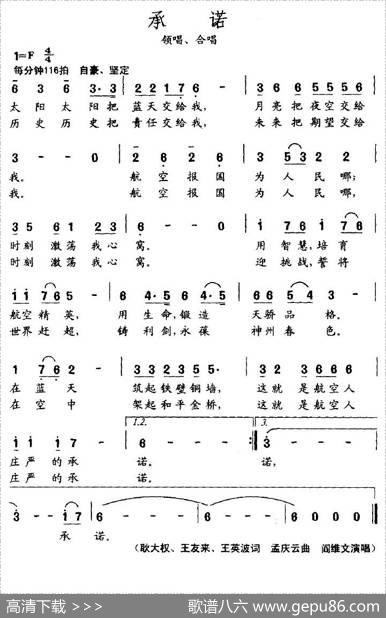 承 诺
领唱、合唱
1=F 4/4
每分钟116拍 自豪、坚定
6 3 6 3·3 | 2 2 1 7 6 - | 3 6 6 6 3 5 5 5
太 阳 太 阳把 蓝天交给我, 月亮把夜空交给
历 史 历 史把 责任交给我, 未来把期望交给
3 - - 0 | 2 6 2 6 | 3 5 3 2 2
我。 航 空 报 国 为 人 民 哪;
我。 航 空 报 国 为 人 民 哪,
3 5 6 1 2 3 | 6 - - 0 | 1 7 6 1 7 6
时刻 激荡 我心 窝。 用 智慧,培育
时刻 激荡 我心 窝。 迎 挑战,誓将
1 1 7 6 5 - | 6 4·5 6 4·5 | 6 6 5 4 3 -
航空 精 英, 用 生命,锻造 天骄 品 格。
世界 赶 超, 铸 利剑,永葆 神州 春 色。
1 7 6 2 - | 3 3 2 3 5 - | 3 3 2 3 6 6 6
在 蓝 天 筑起 铁壁 铜墙, 这就 是 航空人
在 空 中 架起 和平 金桥, 这就 是 航空人
1.2. 3.
1 1 1 7 - | 6 - - - :| 3 - - -
庄 严 的 承 诺。 诺,
庄 严 的 承 诺。
3 - - 1 7 | 6 - - - | 6 - - - | 6 0 0 0
承 诺。
(耿大权、王友来、王英波词 孟庆云曲 阎维文演唱)
高清下载 >>> 歌谱八六 www.gepu86.com